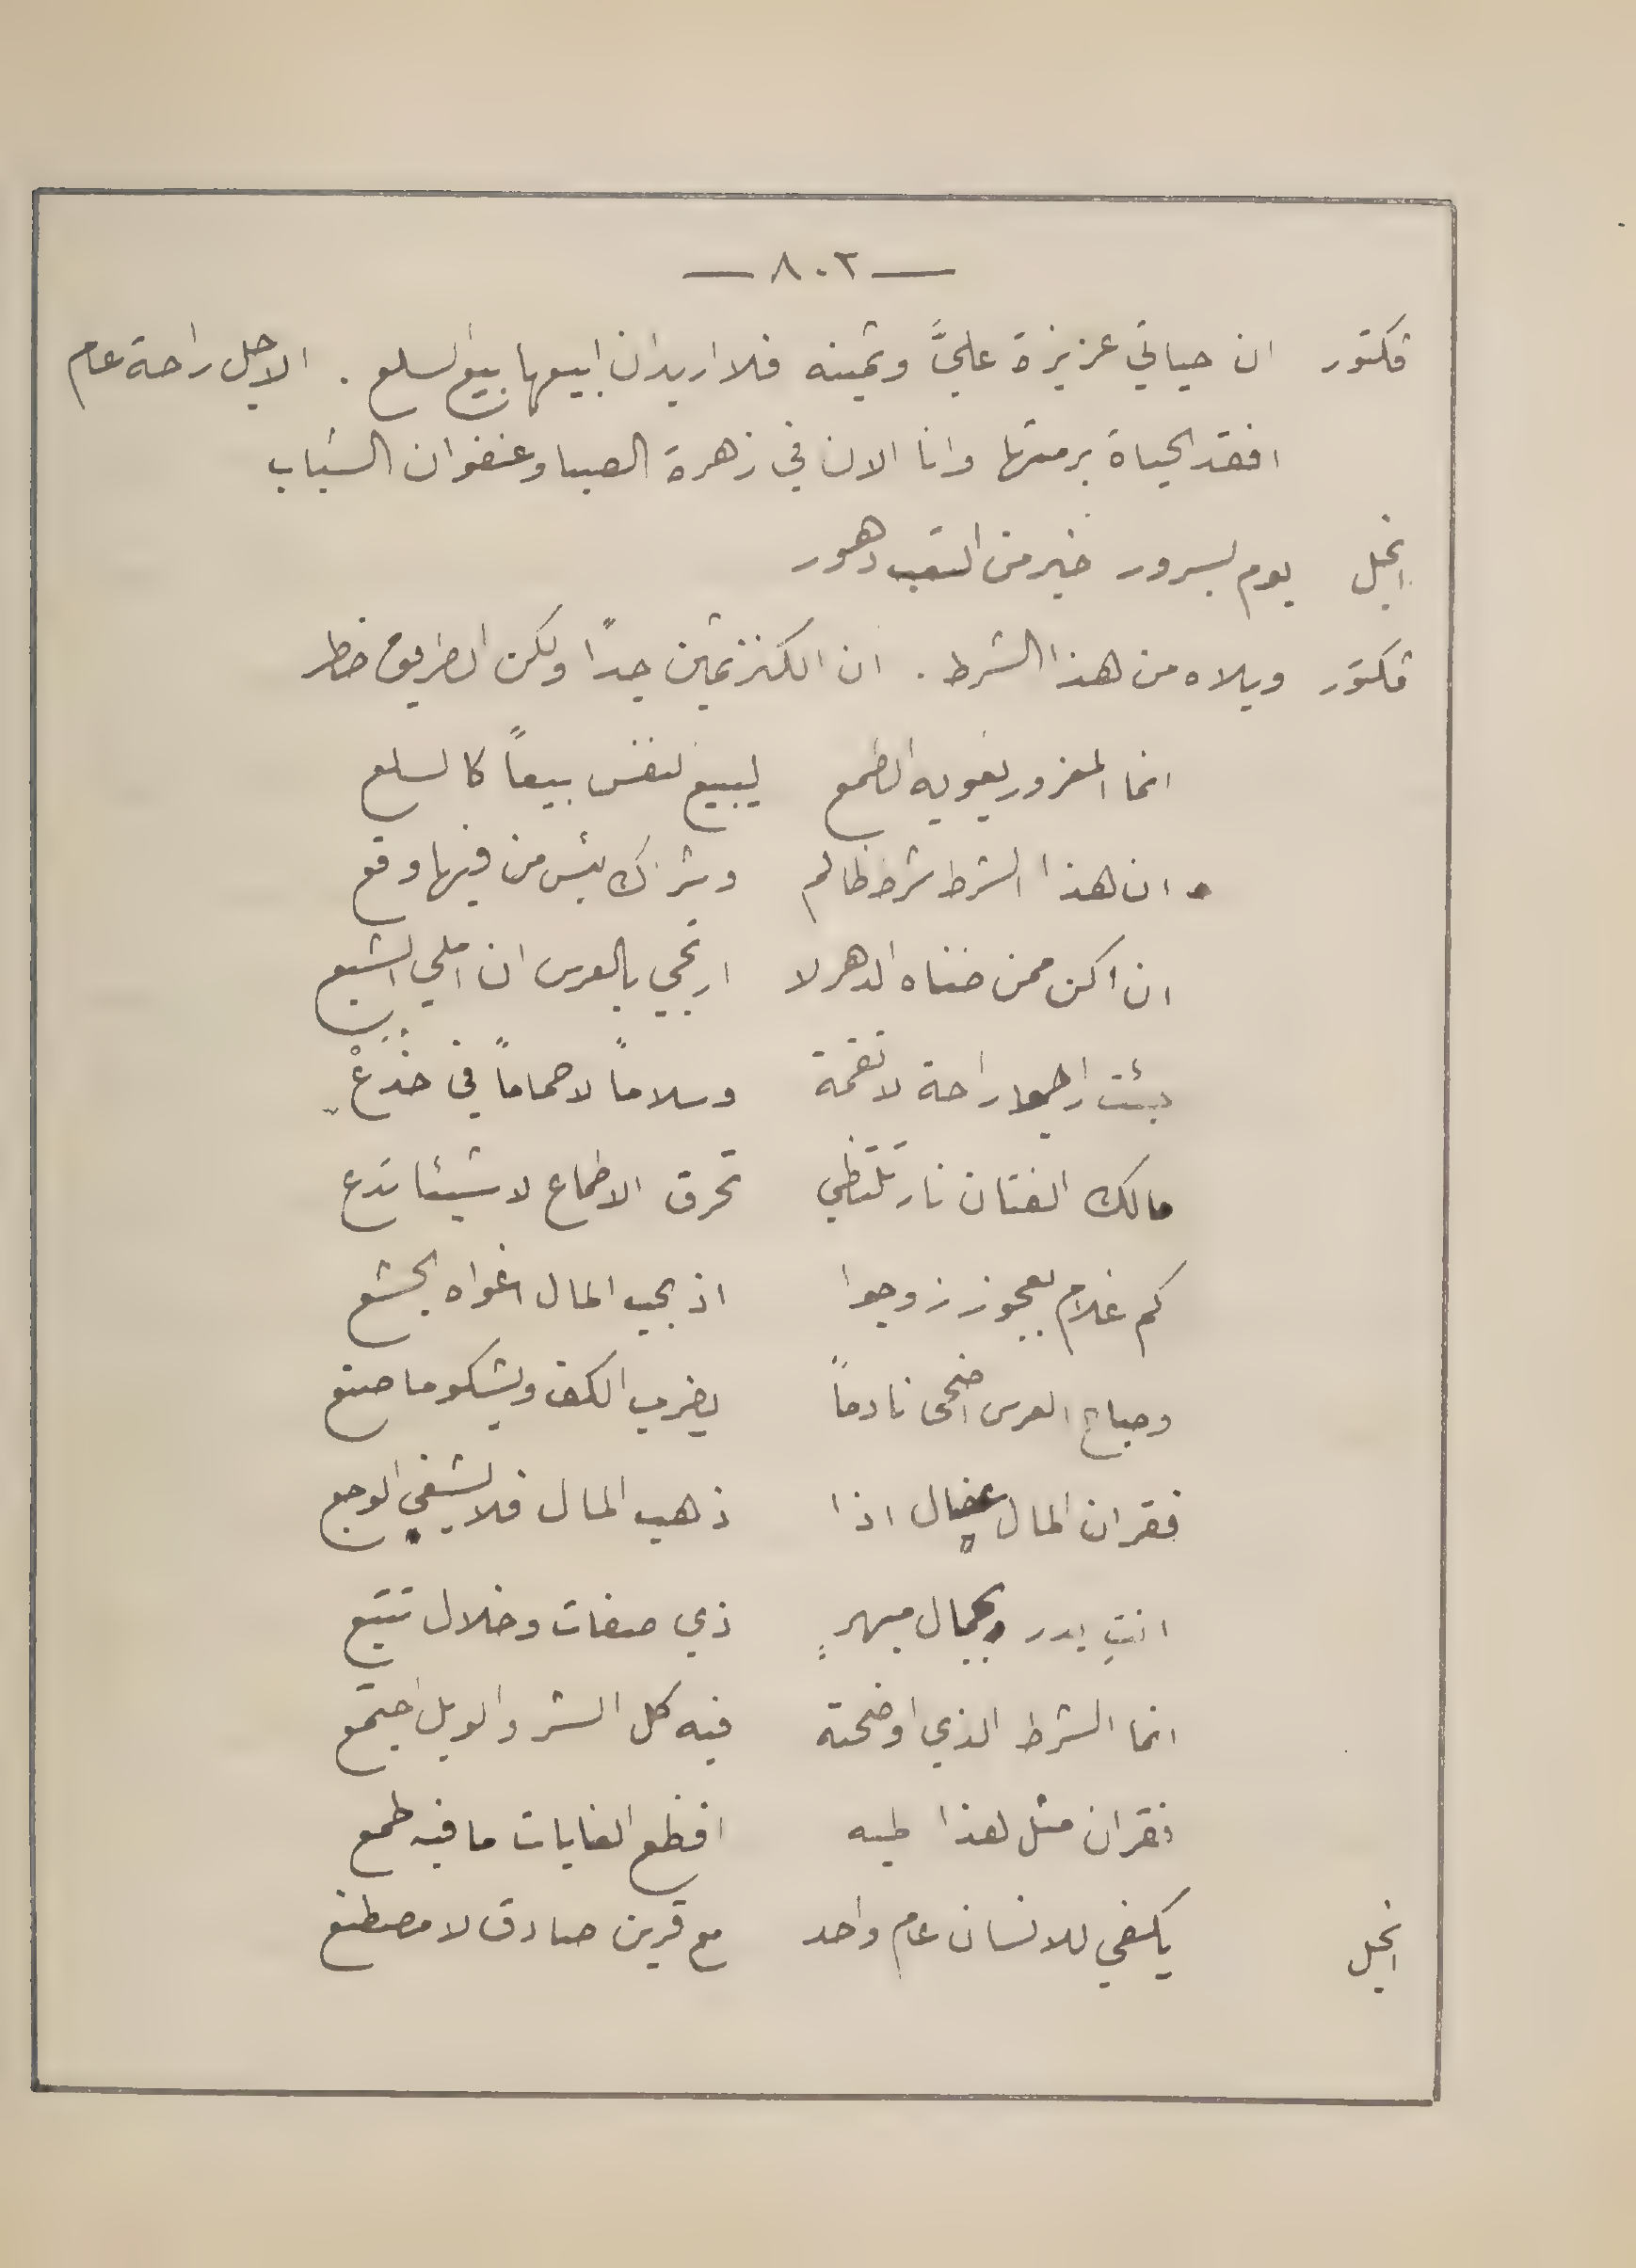 — ٨٠٢ —
ڤكتور ان حياتي عزيزة عليَّ وثمينه فلا اريد ان ابيعها بيع السلع . الاجل راحة عام
افقد الحياة برمتها وانا الان في زهرة الصبا وعنفوان الشباب
انجيل يوم بسرور خير من التعب دهور
ڤكتور ويلاه من هذا الشرط . ان الكنز ثمين جدًا ولكن الطريق خطر
انما المغرور يغويه الطمع ليبيع نفس بيعاً كالسلع
ان هذا الشرط شرط ظالم وشراك بئس من فيها وقع
ان اكن ممن ضناه الدهر لا ارتجي بالعرس ان املي الشبع
جئت راجيا راحة لا نقمة وسلاماً لا حماماً في خدع
مالك الفتان نار تلتظي تحرق الاطماع لا شيئا تدع
كم غلام بعجوز زوجوا اذ بجيب المال اغواه الجشع
وصباح العرس اضحى نادماً يضرب الكف ويشكو ما صنع
فقران المال عضال اذا ذهب المال فلا يشفي الوجع
انتِ بدر وبجمال مبهرٍ ذي صفات وخلال تتبع
انما الشرط الذي اوضحته فيه كل الشر والويل اجتمع
فقران مثل هذا طيه افظع الغايات ما فيه طمع
انجيل يكفي للانسان عام واحد مع قرين صادق لا مصطنع